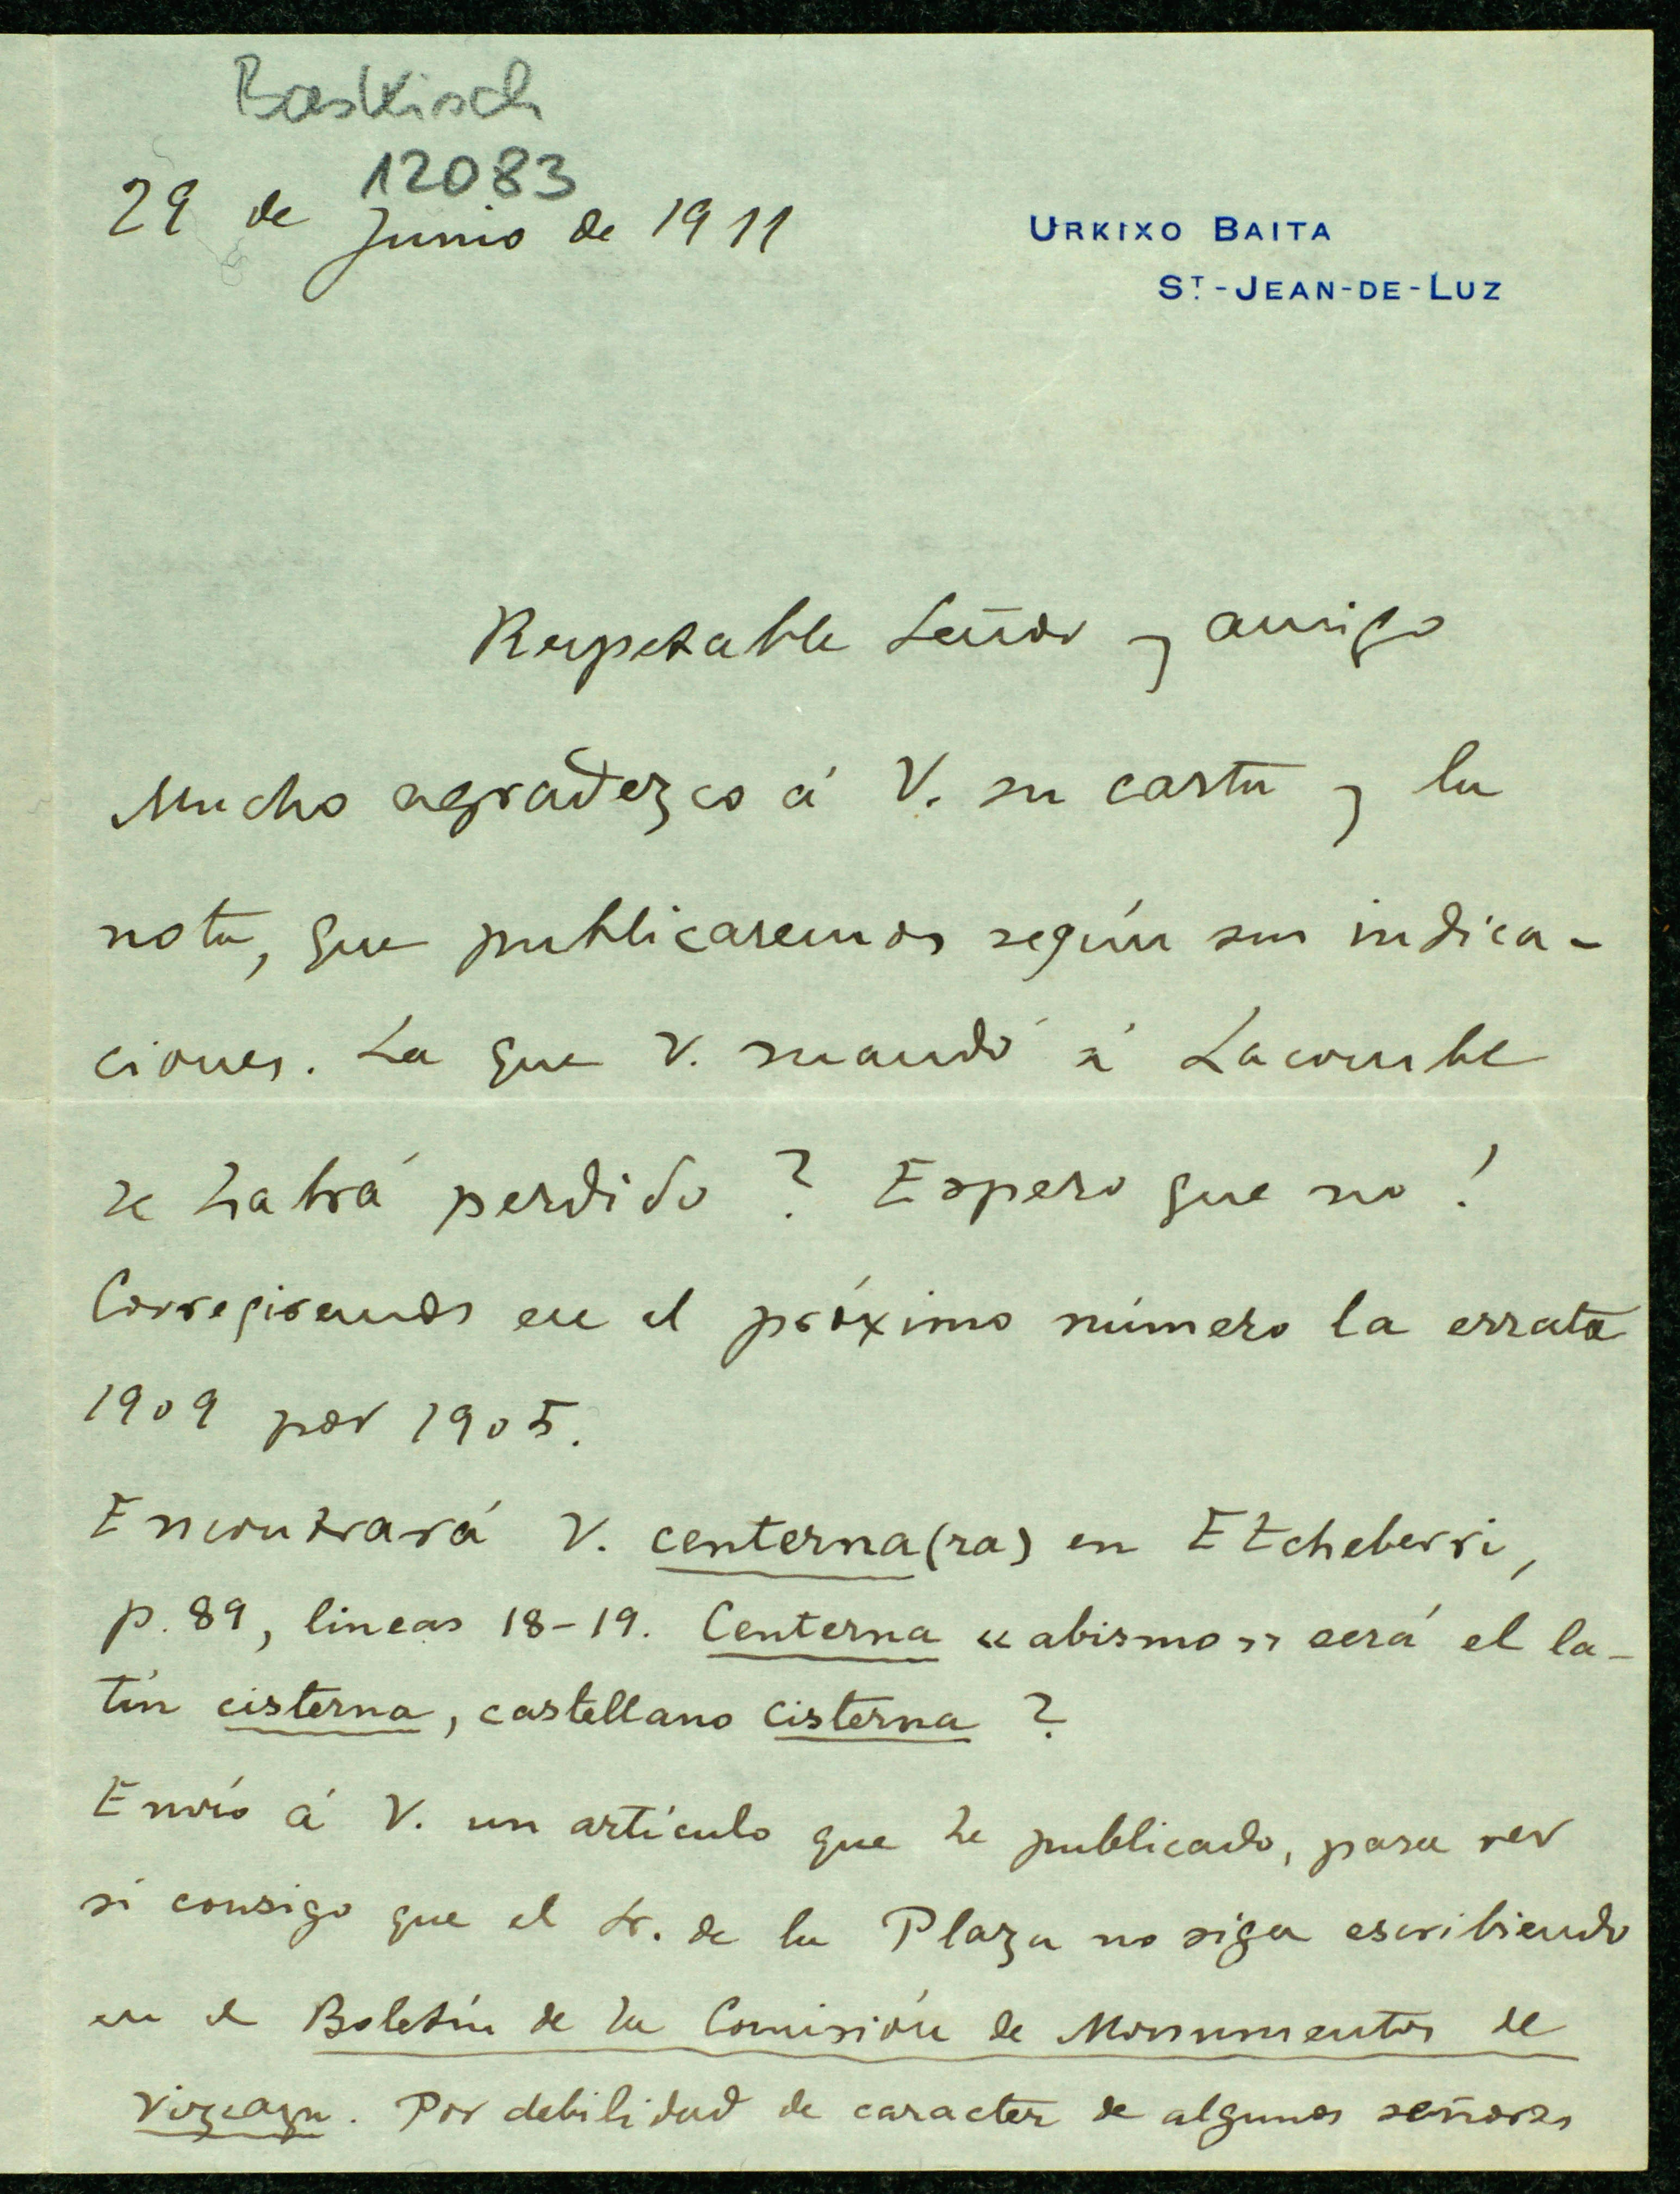 Baskisch
12083
29 de Junio de 1911
URKIXO BAITA
ST.-JEAN-DE-LUZ
Respetable Señor y amigo
Mucho agradezco á V. su carta y la
nota, que publicaremos según sus indica-
ciones. La que V. mandó á Lacombe
se habrá perdido? Espero que no!
Corregiremos en el próximo número la errata
1909 por 1905.
Encontrará V. centerna(ra) en Etcheberri,
p. 89, lineas 18-19. Centerna «abismo» será el la-
tín cisterna, castellano cisterna?
Envío á V. un artículo que he publicado, para ver
si consigo que el Sr. de la Plaza no siga escribiendo
en el Boletín de la Comisión de Monumentos de
Vizcaya. Por debilidad de caracter de algunos señores